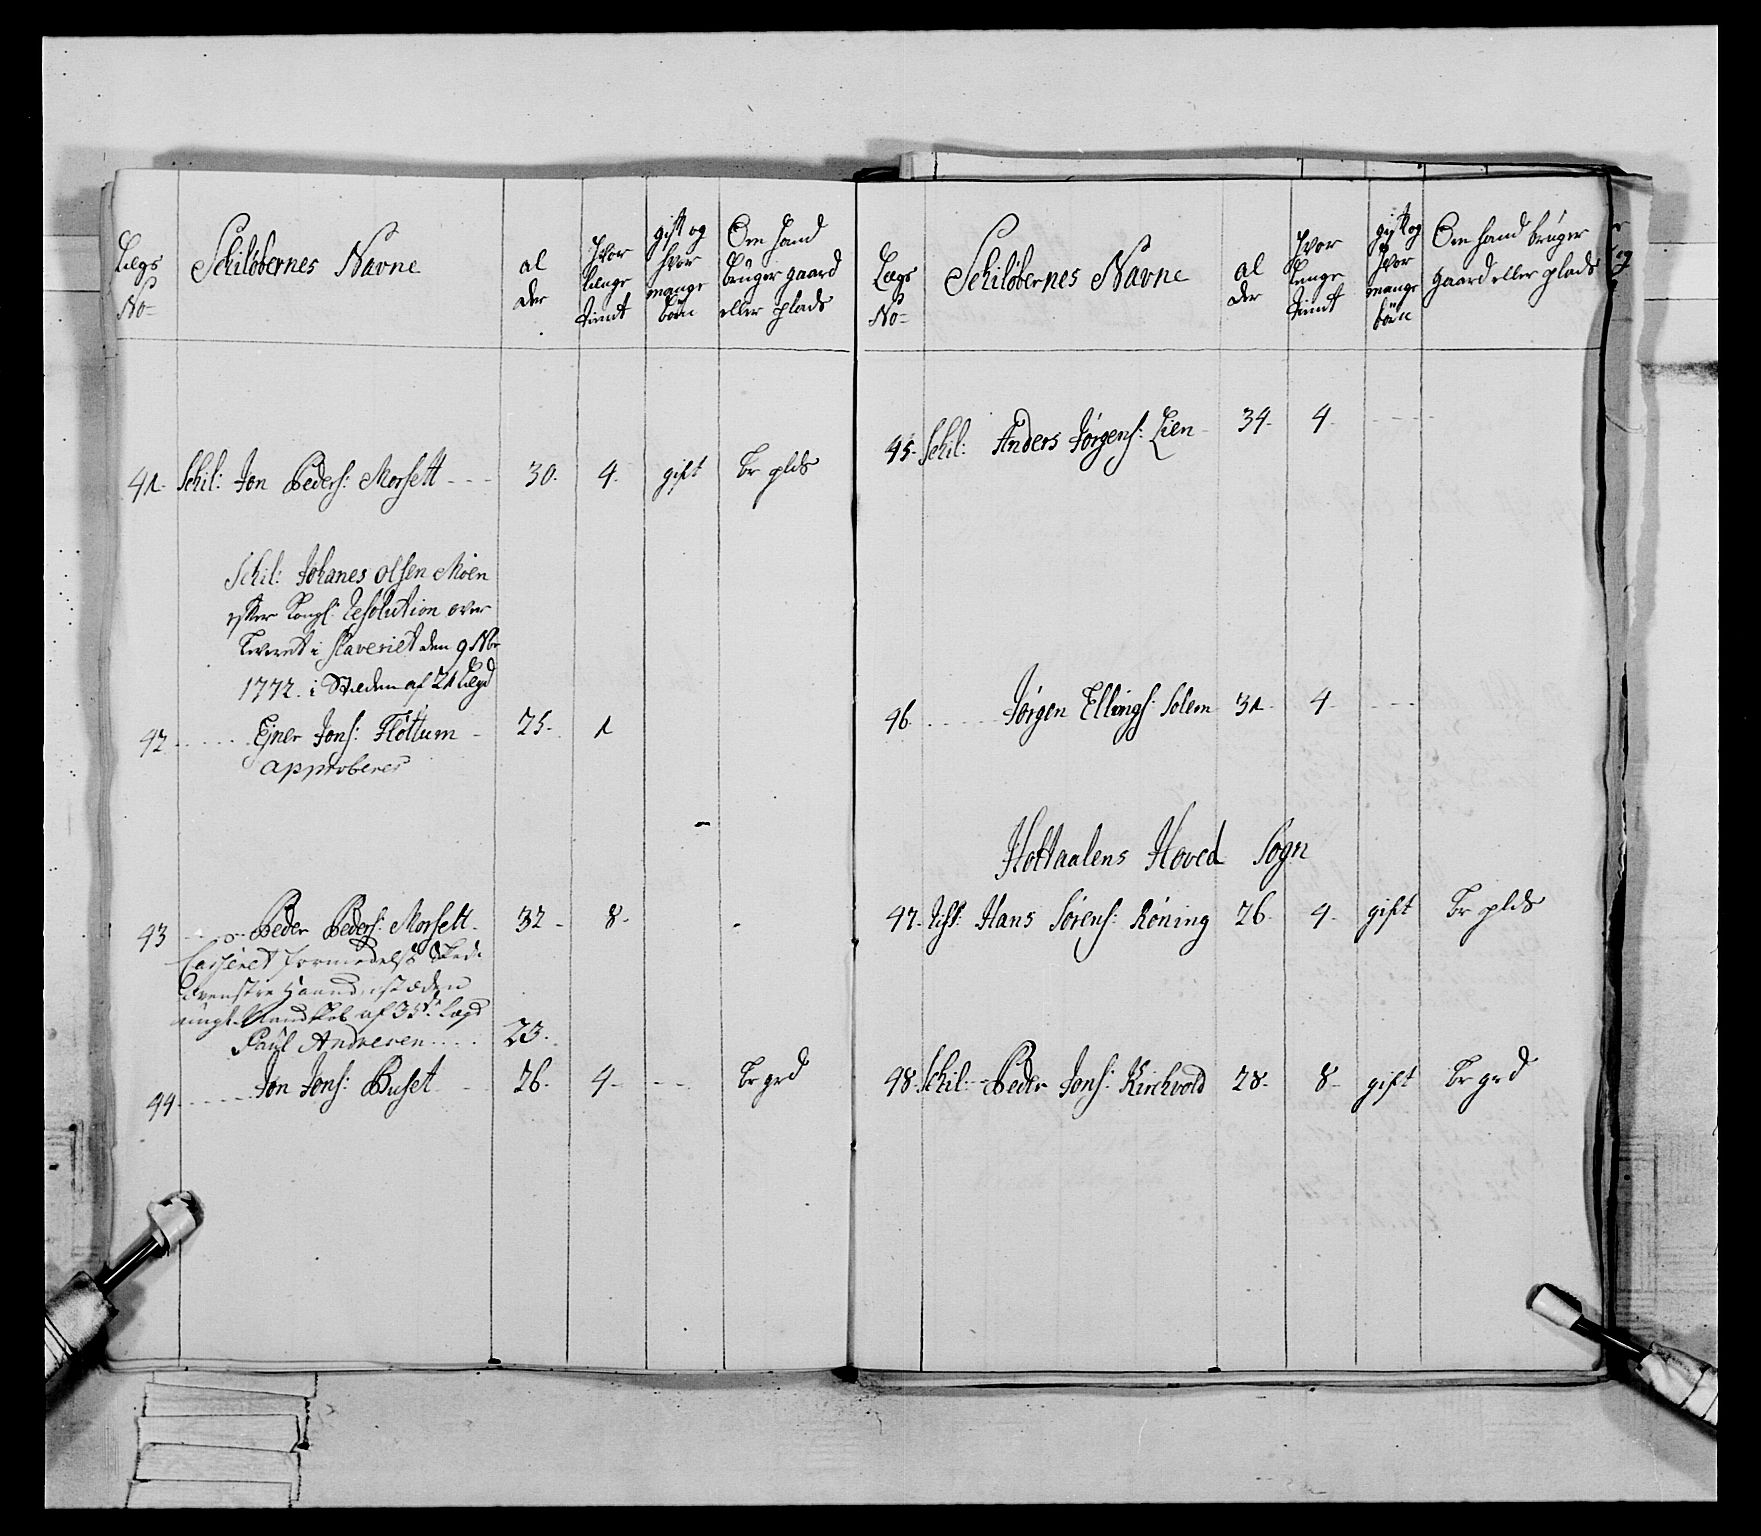 Lægs No=
Schilöbernes Navne
al der
hvor længe tient
gift og hvor mange börn
Om hand bruger gaard eller plads
41. Schil: Jon Peders: Morsett - - - 30. 4. gift br plds
Schil: Johanes Olsen Moen
efter Kongl: Resolution over
leveret i Slaveriet den 9 Nbr
1772. i Steden af 21 Lægd
42 - - - - Ejner Jons: Fløttum - 25. 1
approberes
43 - - - Peder Peders: Morsett. 32 - 8 -
Casseret formedelst
venstre Haand
Mandskab af 35te Lægd
Paul Andresen .... 23.
44 - - - - Jon Jons: Buset - - 26. 4 - - - - br grd
Lægs No=
Schilöbernes Navne
al der
hvor længe tient
gift og hvor mange börn
Om hand bruger gaard eller plads
45. Schil: Anders Jørgens: Lien - 34. 4. - - - -
46 - - - - Jørgen Ellings: Solem 31. 4. - - - -
Holtaalens Hoved Sogn
47. Hans Sørens: Røning 26. 4. gift br plds
48. Schil: - Peder Jons: Kirchvold 28. 8. gift br grd